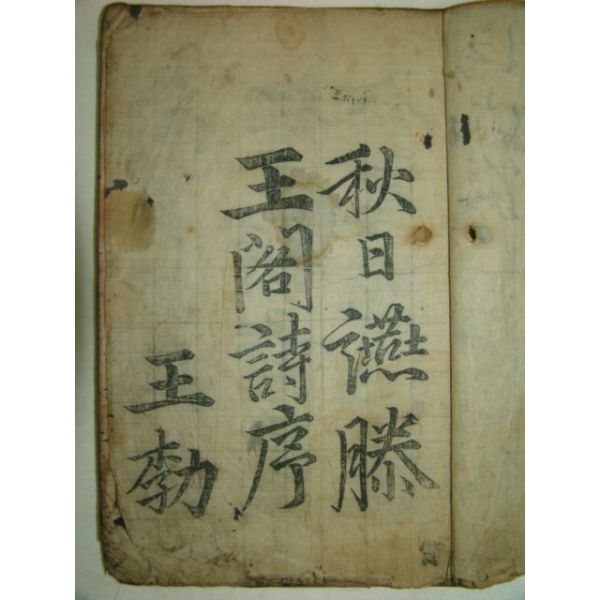 秋日讌滕
王閣詩序
王勃